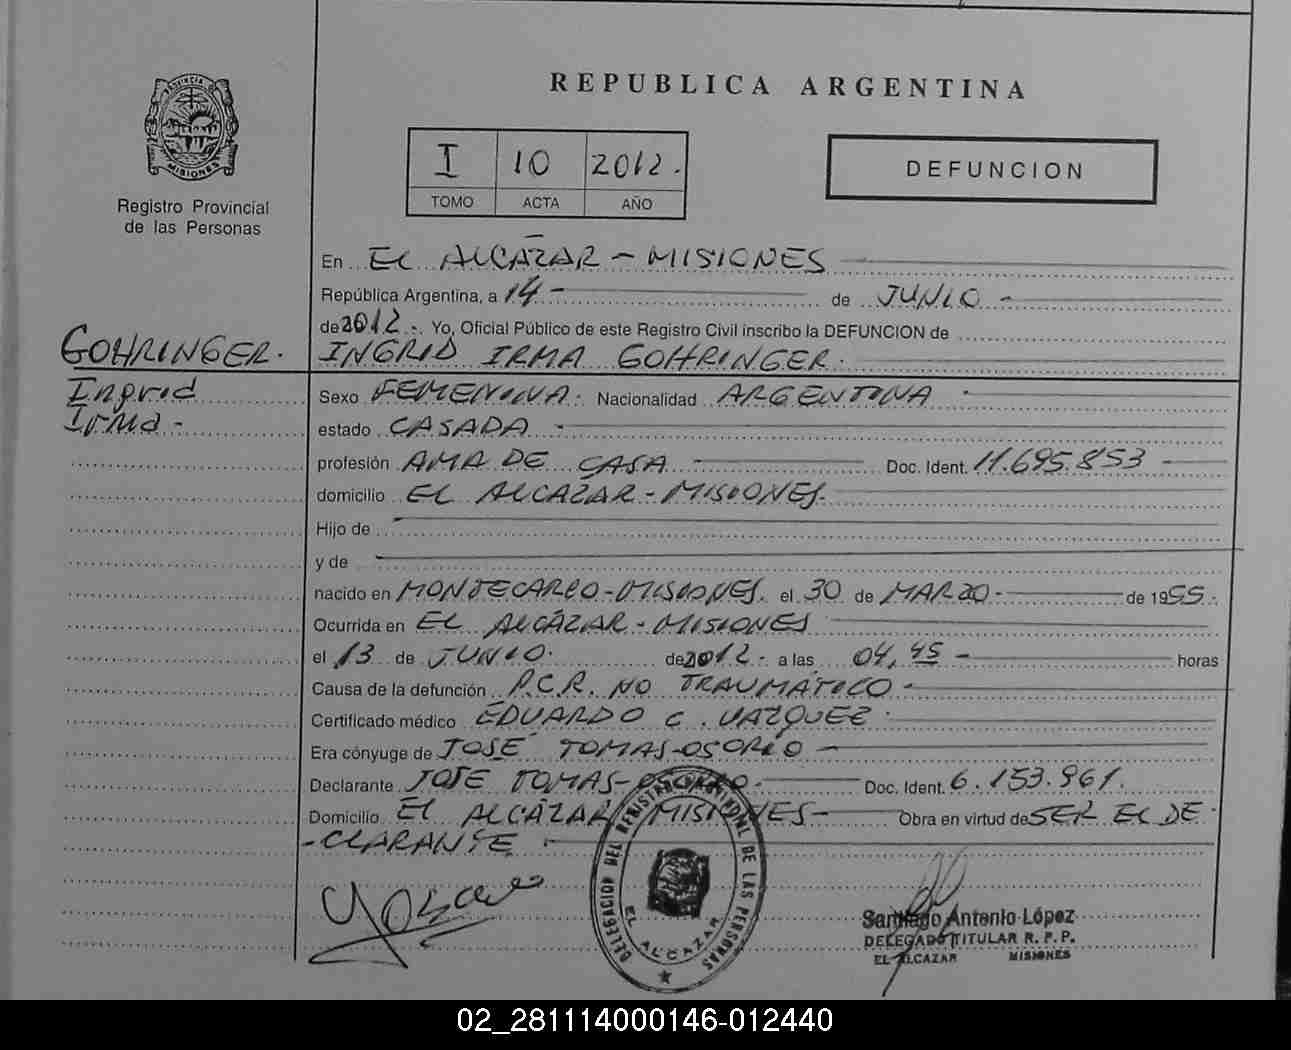 REPUBLICA ARGENTINA
PROVINCIA D MISIONES
Registro Provincial
de las Personas
I 10 2012.
TOMO ACTA AÑO
DEFUNCION
En EL ALCÁZAR - MISIONES
República Argentina, a 14 - de JUNIO -
de 2012 -. Yo, Oficial Público de este Registro Civil inscribo la DEFUNCION de
GOHRINGER. INGRID IRMA GOHRINGER.
Ingrid Sexo FEMENINA. Nacionalidad ARGENTINA -
Irma - estado CASADA -
profesión AMA DE CASA - Doc. Ident. 11.695.853 -
domicilio EL ALCAZAR - MISIONES.
Hijo de
y de
nacido en MONTECARLO - MISIONES. el 30 de MARZO - de 1955.
Ocurrida en EL ALCÁZAR - MISIONES
el 13 de JUNIO. de 2012 - a las 04,45 - horas
Causa de la defunción P.C.R. NO TRAUMÁTICO -
Certificado médico EDUARDO C. VAZQUEZ.
Era cónyuge de JOSÉ TOMAS-OSORIO -
Declarante JOSE TOMAS-OSORIO. Doc. Ident. 6.153.961.
Domicilio EL ALCÁZAR MISIONES - Obra en virtud de SER EL DE
-CLARANTE
DELEGACION DEL REGISTRO PROVINCIAL DE LAS PERSONAS
EL ALCAZAR
Santiago Antonio López
DELEGADO TITULAR R. P. P.
EL ALCAZAR MISIONES
02_281114000146-012440